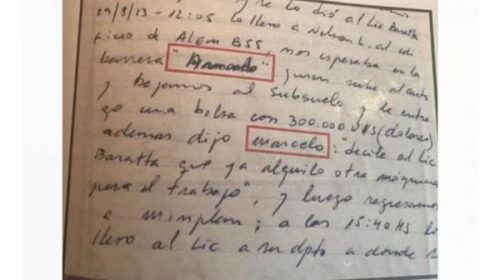 se lo dió al Lic Baratta
29/8/13 - 12:05 lo llevo a Nelson L. al edi
ficio de ALEM 855, nos esperaba en la
barrera "Armando" quien sube al auto
y bajamos al subsuelo y le entre
go una bolsa con 300.000 U$S (dolares)
ademas dijo marcelo: "decile al Lic
Baratta que ya alquilo otra máquina
para el trabajo", y luego regresamos
a minplan; a las 15:40 HS lo
llevo al Lic a su dpto a donde